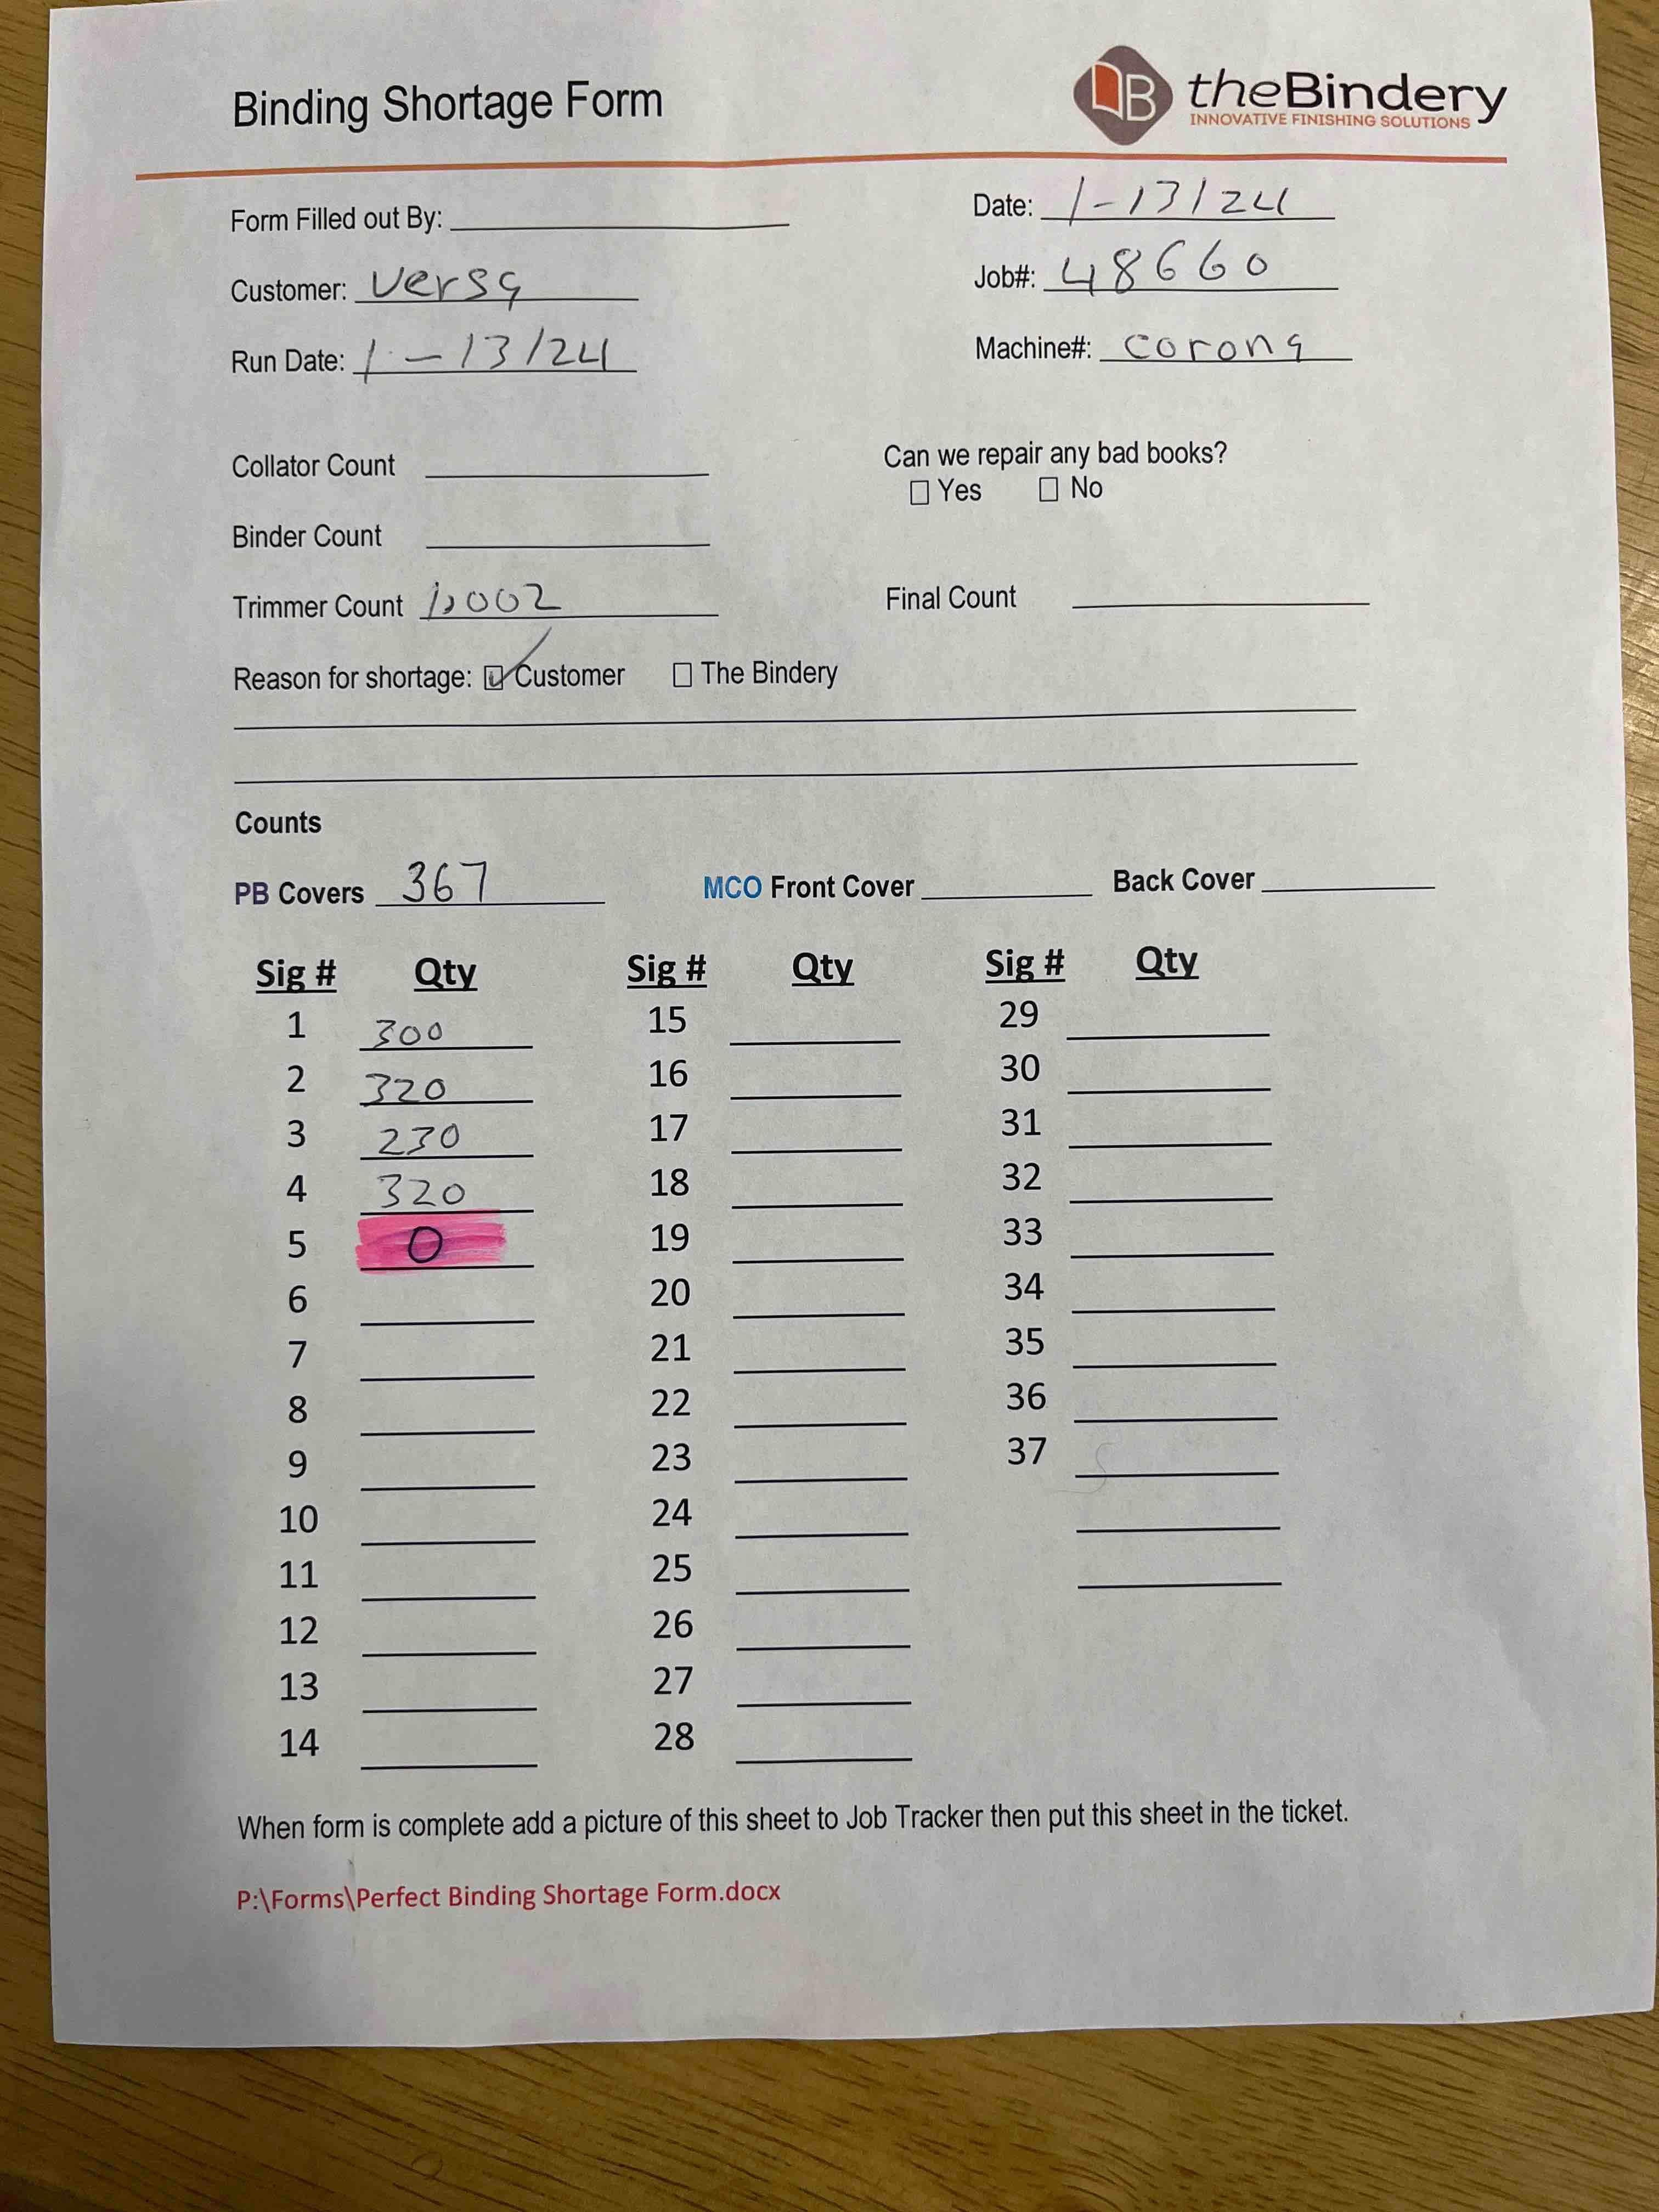 Binding Shortage Form
theBindery
INNOVATIVE FINISHING SOLUTIONS
Form Filled out By:
Date: 1-13/24
Customer: Versa
Job#: 48660
Run Date: 1-13/24
Machine#: corona
Collator Count
Can we repair any bad books?
Yes No
Binder Count
Trimmer Count 1,002
Final Count
Reason for shortage: Customer The Bindery
Counts
PB Covers 367 MCO Front Cover Back Cover
Sig # Qty Sig # Qty Sig # Qty
1 300 15 29
2 320 16 30
3 230 17 31
4 320 18 32
5 0 19 33
6 20 34
7 21 35
8 22 36
9 23 37
10 24
11 25
12 26
13 27
14 28
When form is complete add a picture of this sheet to Job Tracker then put this sheet in the ticket.
P:\Forms\Perfect Binding Shortage Form.docx